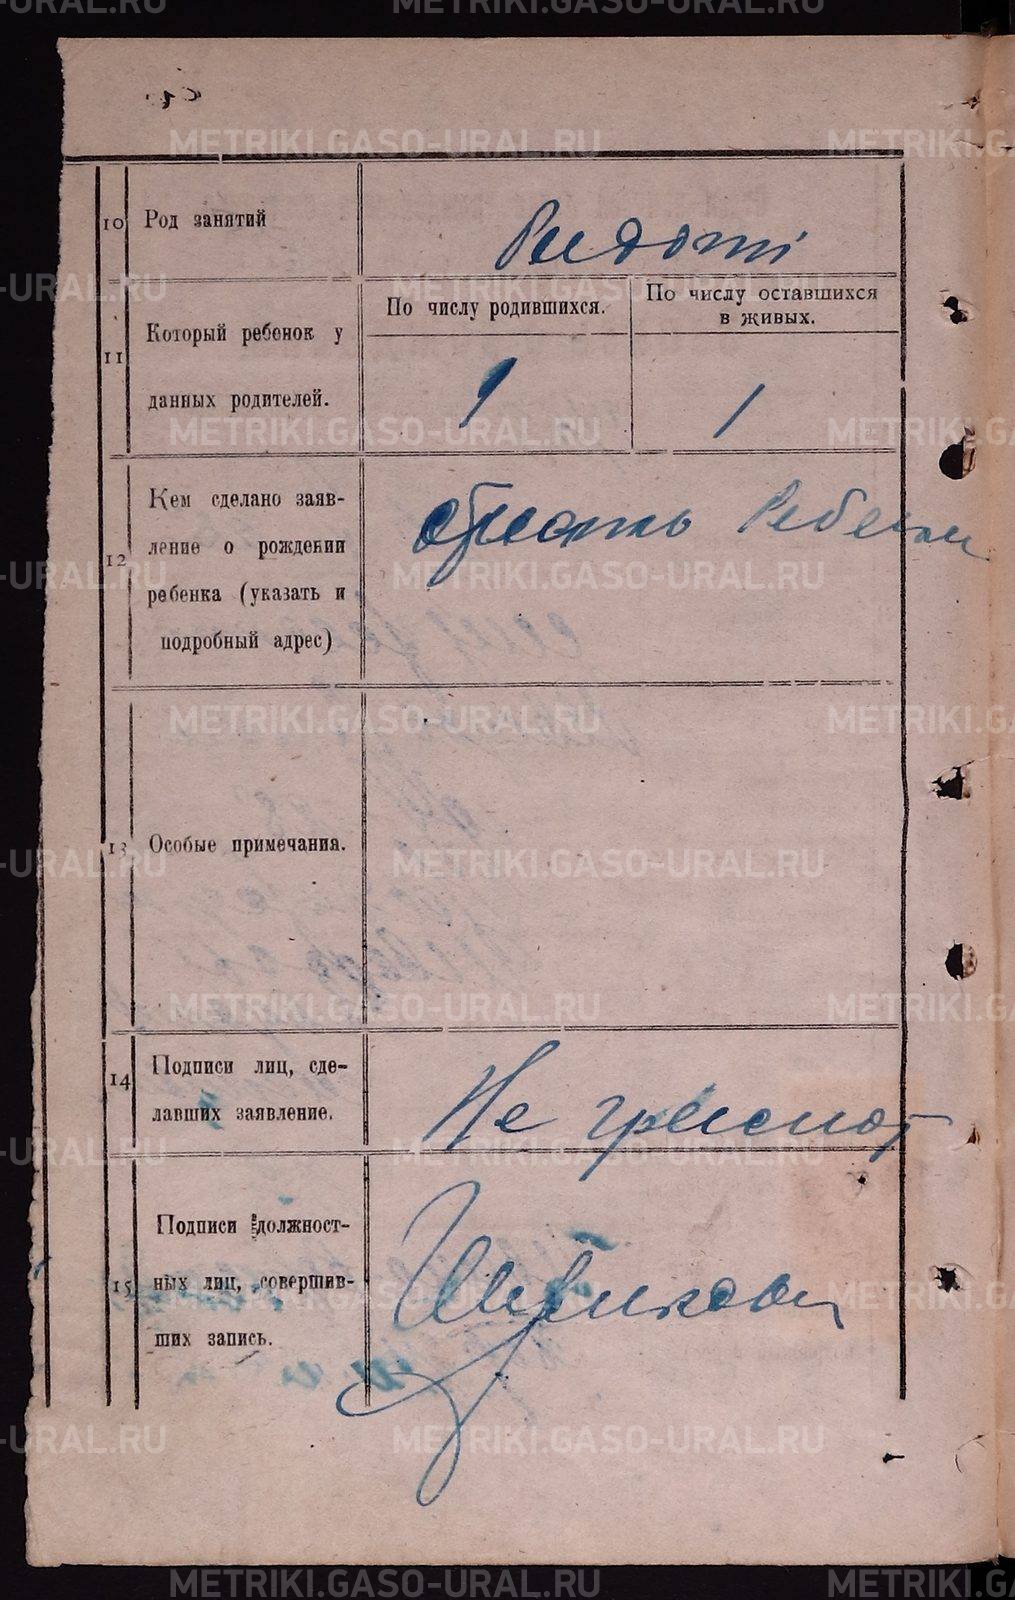 METRIKI.GASO-URAL.RU
10 Род занятий
11 Который ребенок у
данных родителей.
По числу родившихся.
По числу оставшихся
в живых.
1
1
12 Кем сделано заяв-
ление о рождении
ребенка (указать и
подробный адрес)
13 Особые примечания.
14 Подписи лиц, сде-
лавших заявление.
Не грамот
15 Подписи должност-
ных лиц, совершив-
ших запись.